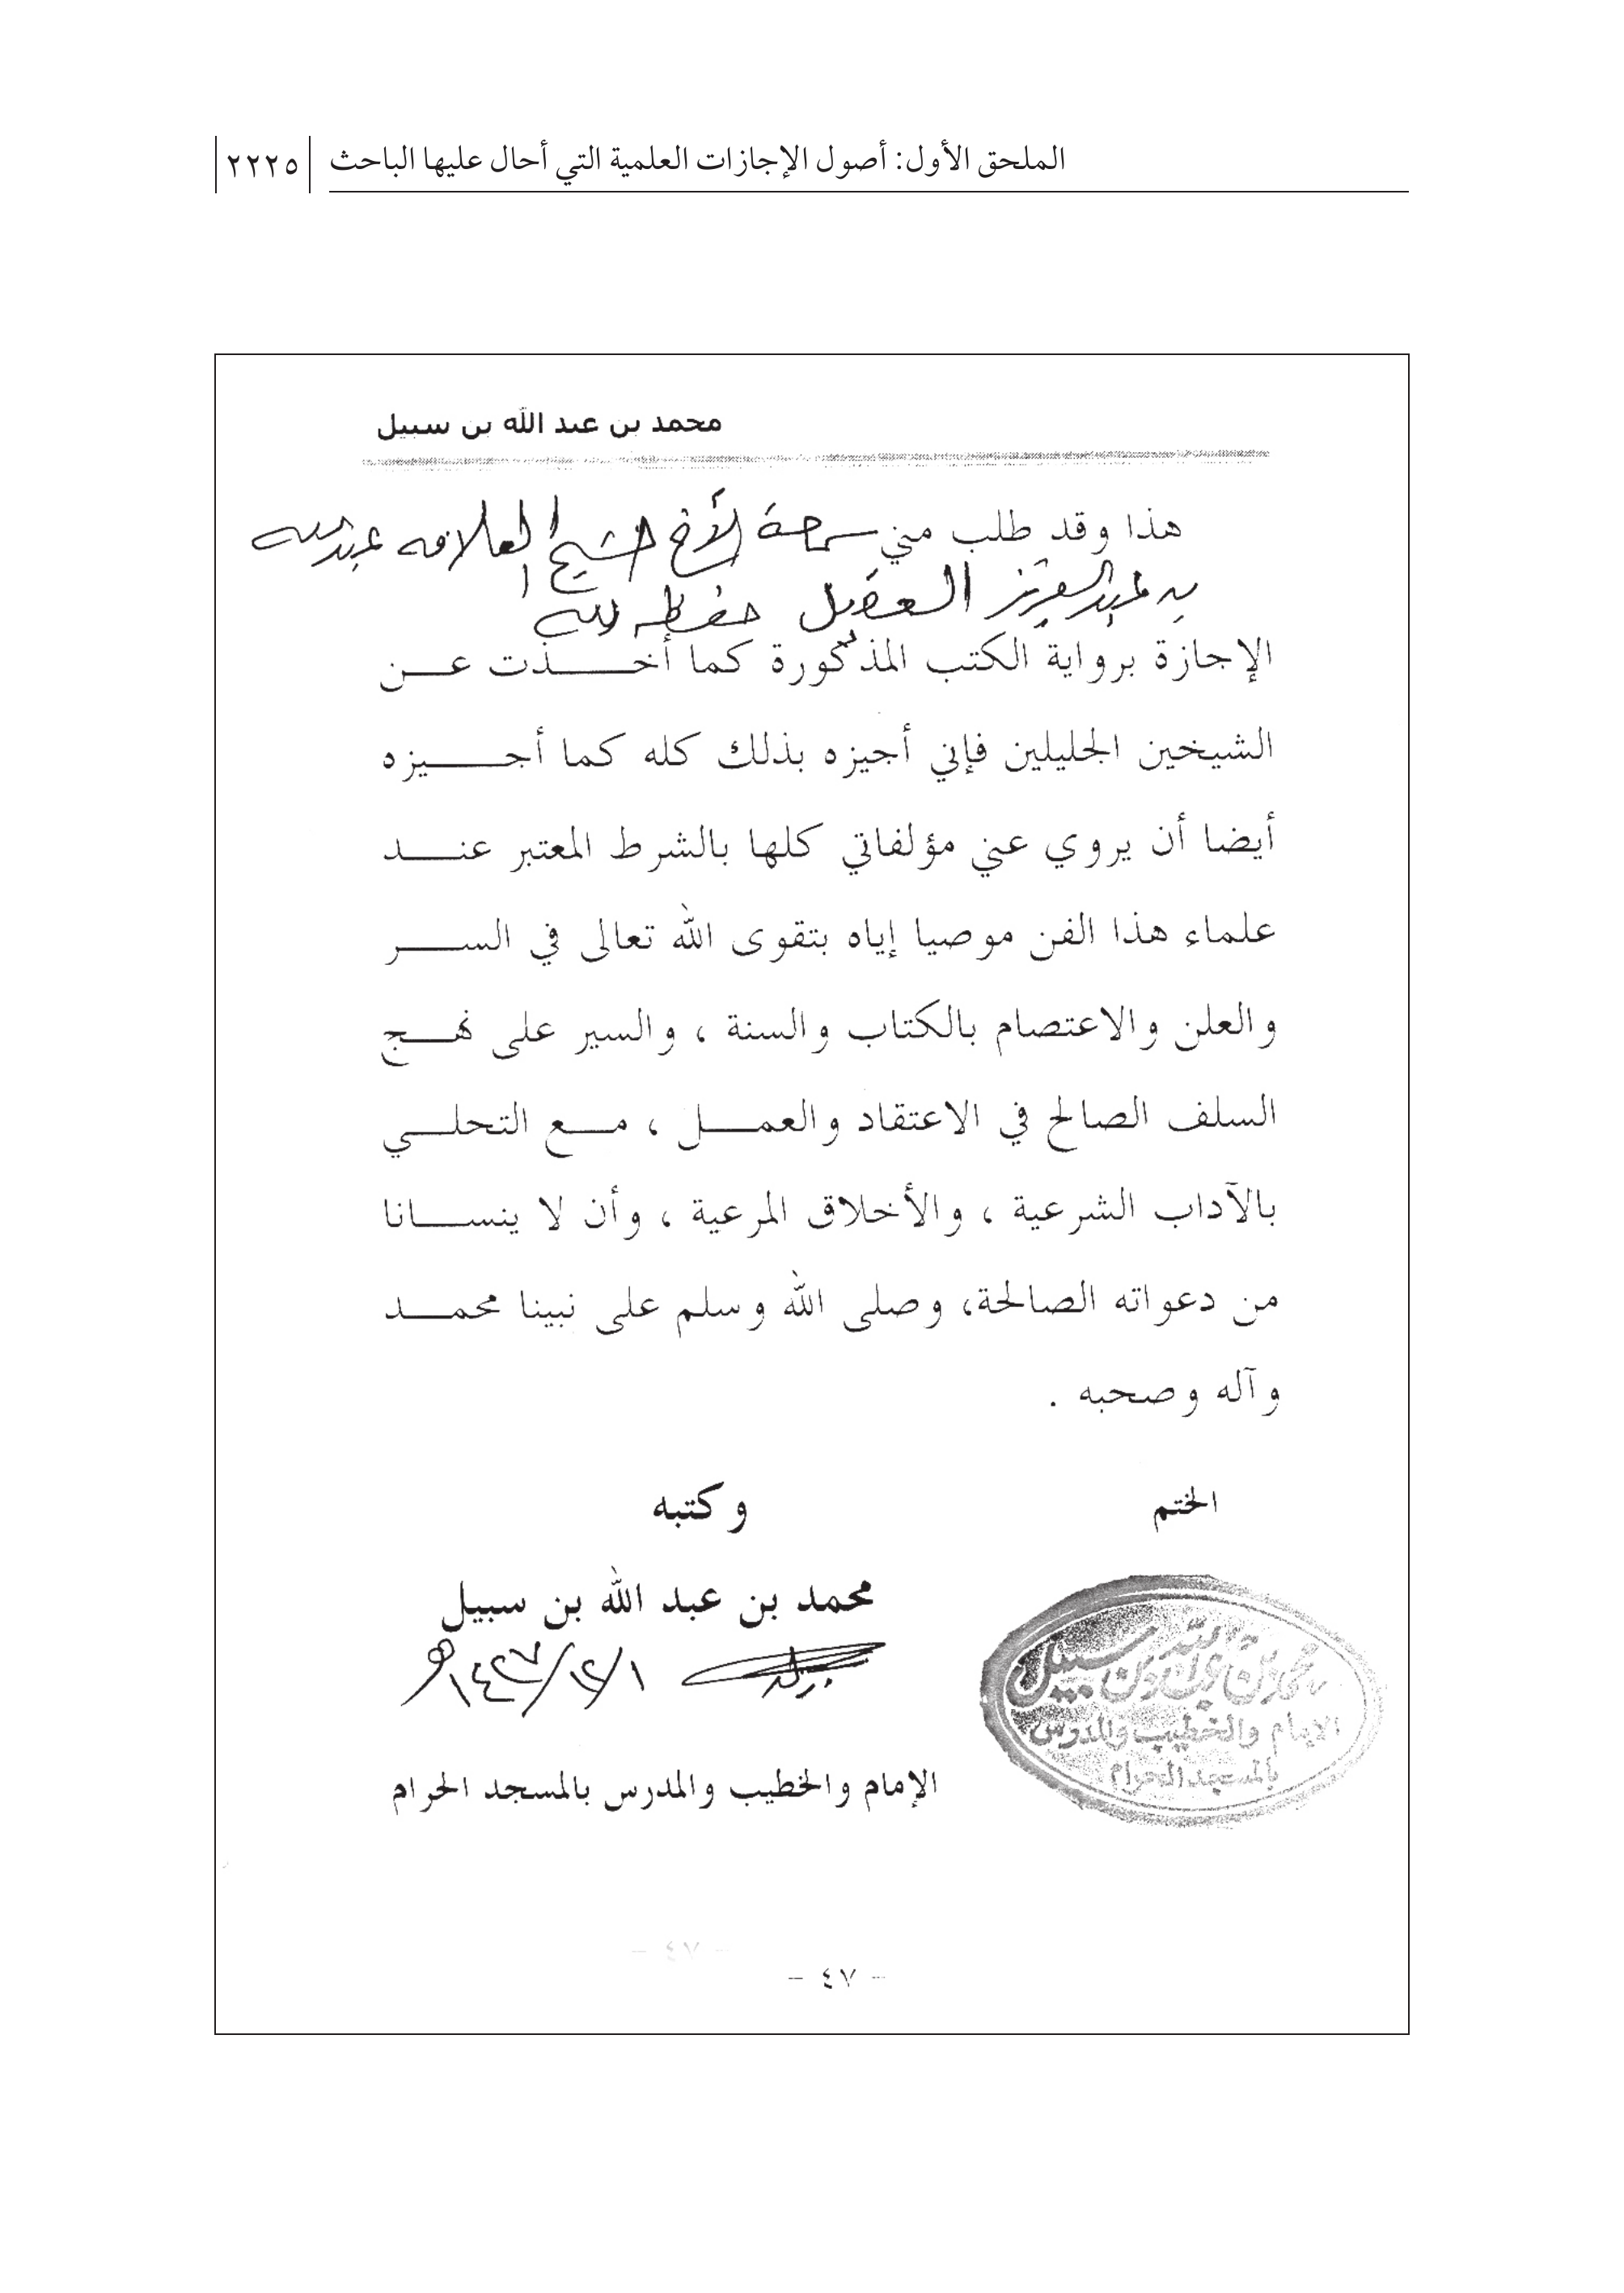 الملحق الأول: أصول الإجازات العلمية التي أحال عليها الباحث ٢٢٢٥
محمد بن عبد الله بن سبيل
هذا وقد طلب مني سماحة الأخ الشيخ العلامة عبدالله
بن عبدالعزيز العقيل حفظه الله
الإجازة برواية الكتب المذكورة كما أخـــــذت عـــن
الشيخين الجليلين فإني أجيزه بذلك كله كما أجـــــيزه
أيضا أن يروي عني مؤلفاتي كلها بالشرط المعتبر عنـــد
علماء هذا الفن موصيا إياه بتقوى الله تعالى في الســـر
والعلن والاعتصام بالكتاب والسنة ، والسير على نهـــج
السلف الصالح في الاعتقاد والعمـــل ، مـــع التحلـــي
بالآداب الشرعية ، والأخلاق المرعية ، وأن لا ينســـانا
من دعواته الصالحة، وصلى الله وسلم على نبينا محمـــد
وآله وصحبه .
الختم
وكتبه
محمد بن عبد الله بن سبيل
١٤٢٧/١٢/١هـ
محمد بن عبد الله بن سبيل
الإمام والخطيب والمدرس
بالمسجد الحرام
الإمام والخطيب والمدرس بالمسجد الحرام
- ٤٧ -
- ٤٧ -